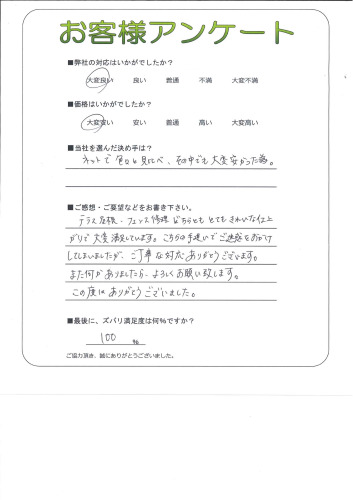 お客様アンケート
■弊社の対応はいかがでしたか？
大変良い 良い 普通 不満 大変不満
■価格はいかがでしたか？
大変安い 安い 普通 高い 大変高い
■当社を選んだ決め手は？
ネットで色々と見比べ、その中でも大変安かった為。
■ご感想・ご要望などをお書き下さい。
テラス屋根・フェンス修理どちらもとてもきれいな仕上
がりで大変満足しています。こちらの手違いでご迷惑をおかけ
してしまいましたが、ご丁寧な対応ありがとうございます。
また何かありましたら、よろしくお願い致します。
この度はありがとうございました。
■最後に、ズバリ満足度は何%ですか？
100 %
ご協力頂き、誠にありがとうございました。